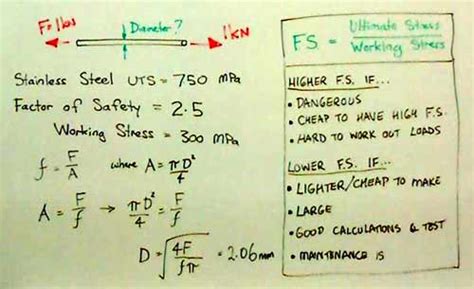 F=1kN Diameter? 1kN
Stainless Steel UTS = 750 MPa
Factor of Safety = 2.5
Working Stress = 300 MPa
f = F/A where A = πD²/4
A = F/f → πD²/4 = F/f
D = √(4F/fπ) = 2.06mm
F.S. = Ultimate Stress / Working Stress
HIGHER F.S. IF...
• DANGEROUS
• CHEAP TO HAVE HIGH F.S.
• HARD TO WORK OUT LOADS
LOWER F.S. IF...
• LIGHTER/CHEAP TO MAKE
• LARGE
• GOOD CALCULATIONS & TEST
• MAINTENANCE IS